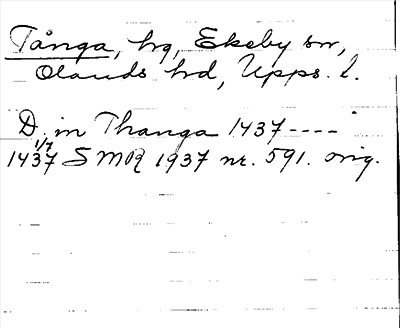 Tånga, by, Ekeby sn,
Olands hd, Upps. l.
D. in Thanga 1437----
1/7
1437 SMR 1937 nr. 591. orig.